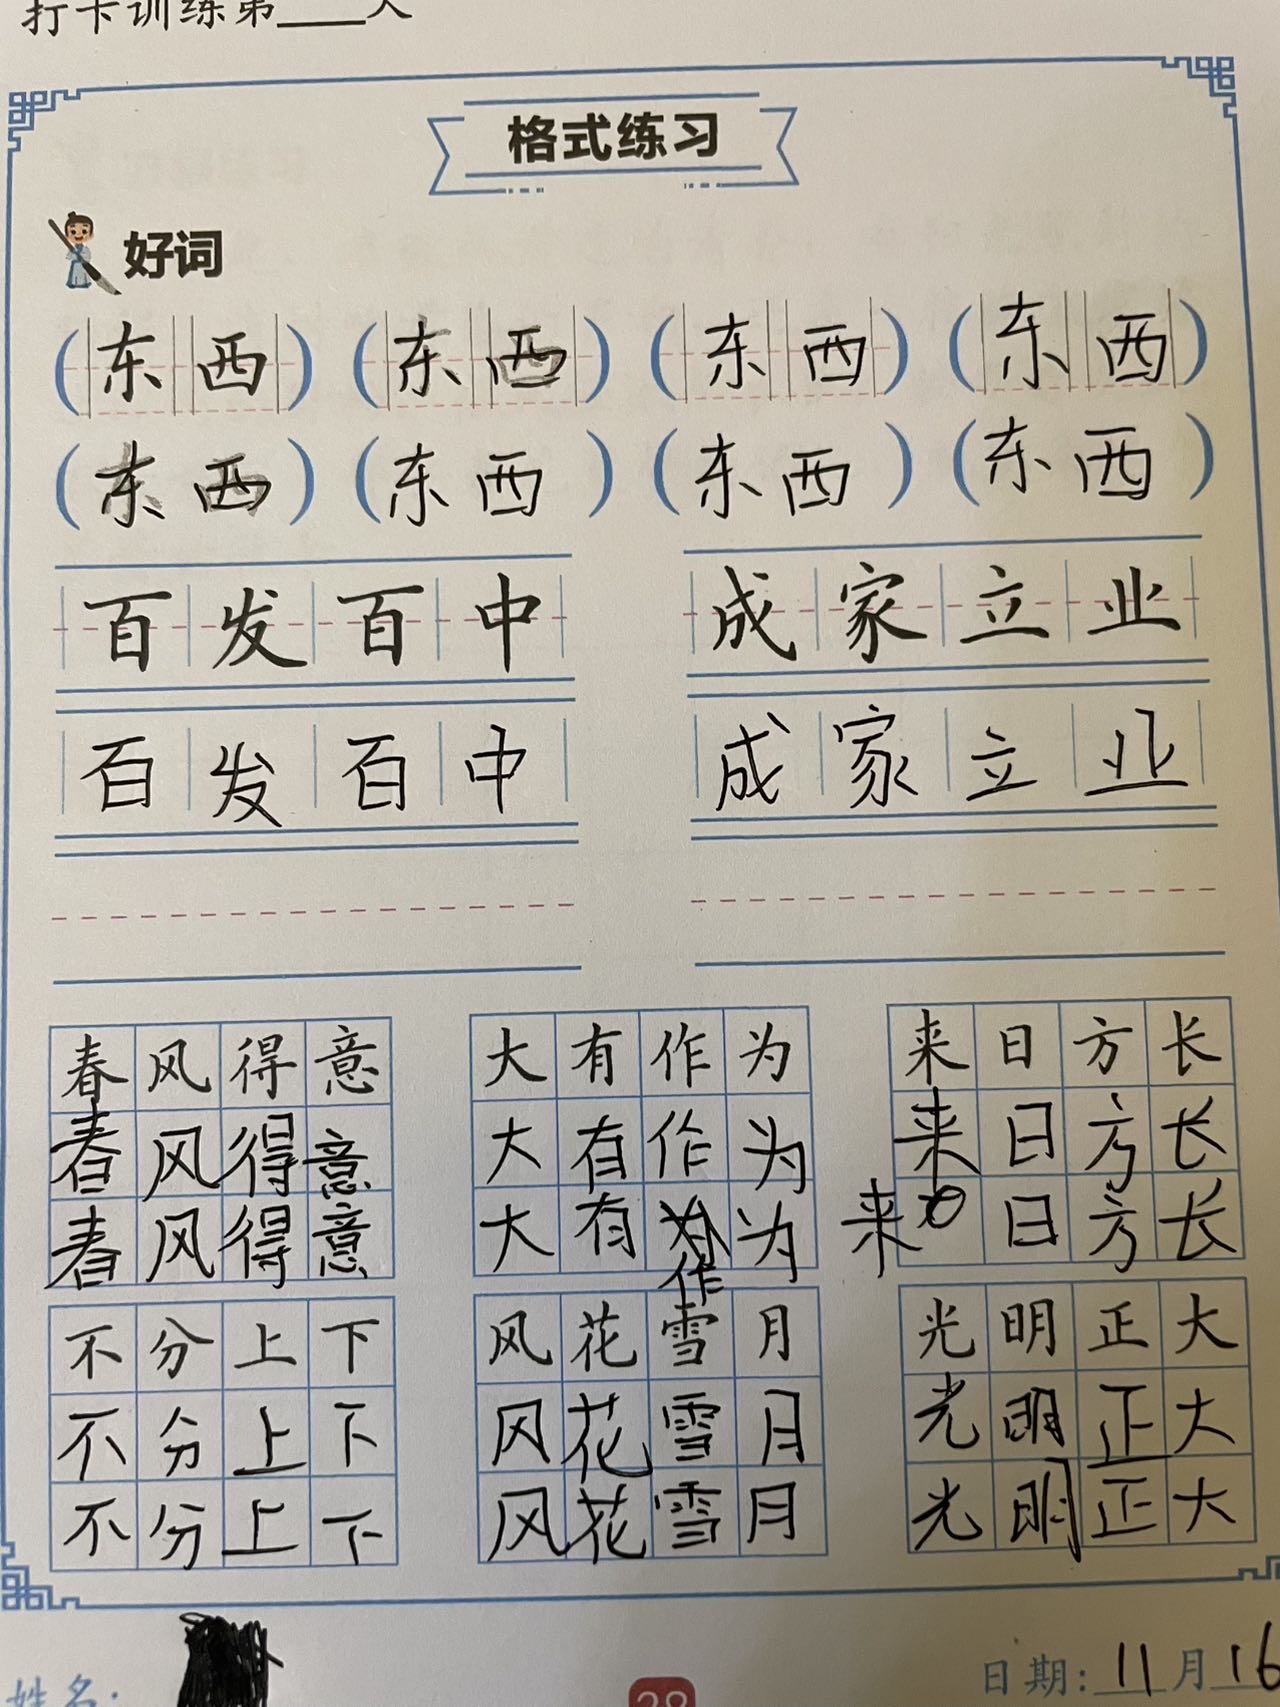 打卡训练第____天
格式练习
好词
(东西) (东西) (东西) (东西)
(东西) (东西) (东西) (东西)
百发百中 成家立业
百发百中 成家立业
春风得意 大有作为 来日方长
春风得意 大有作为 来日方长
春风得意 大有作为 来日方长
不分上下 风花雪月 光明正大
不分上下 风花雪月 光明正大
不分上下 风花雪月 光明正大
姓名: 日期: 11月16